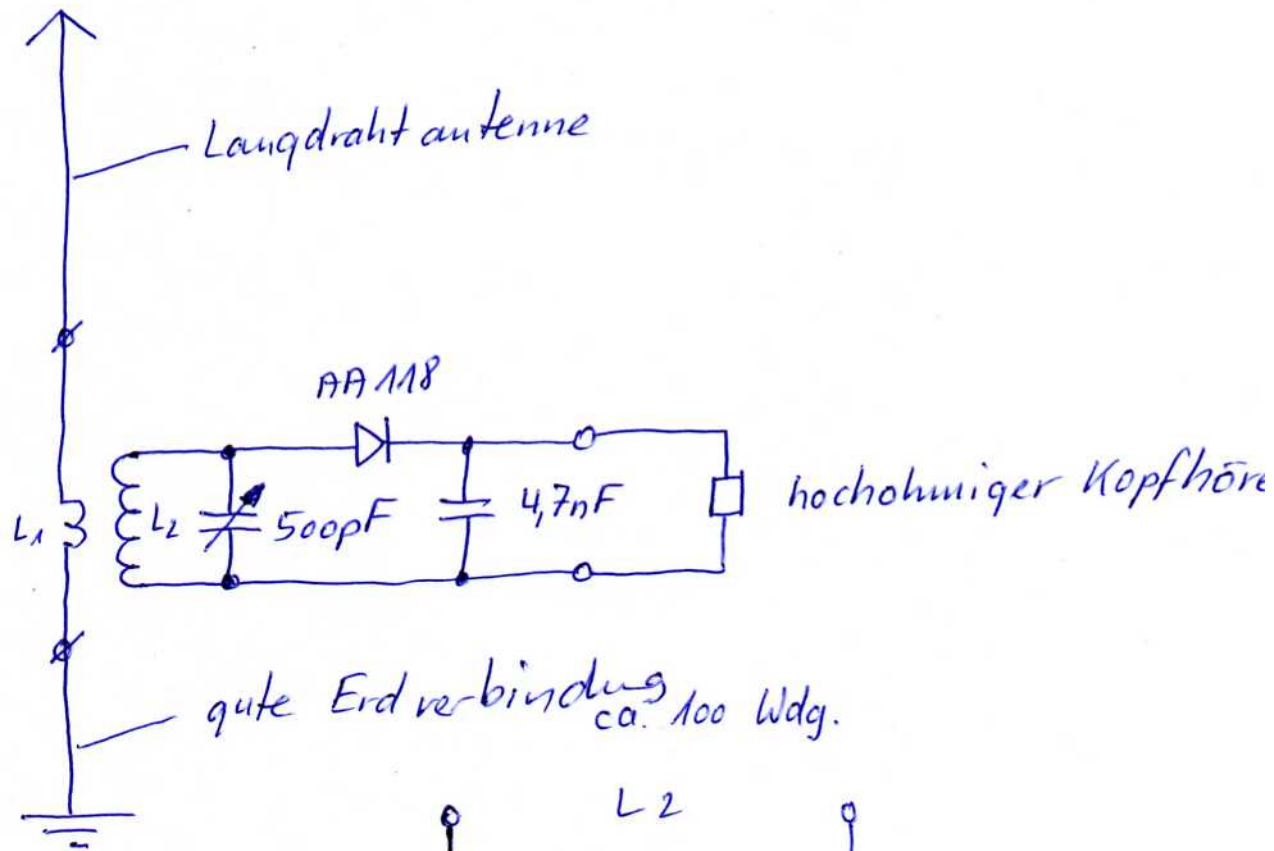 Langdrahtantenne
AA118
L1
L2
500pF
4,7nF
hochohmiger Kopfhöre
gute Erdverbindung
ca. 100 Wdg.
L2